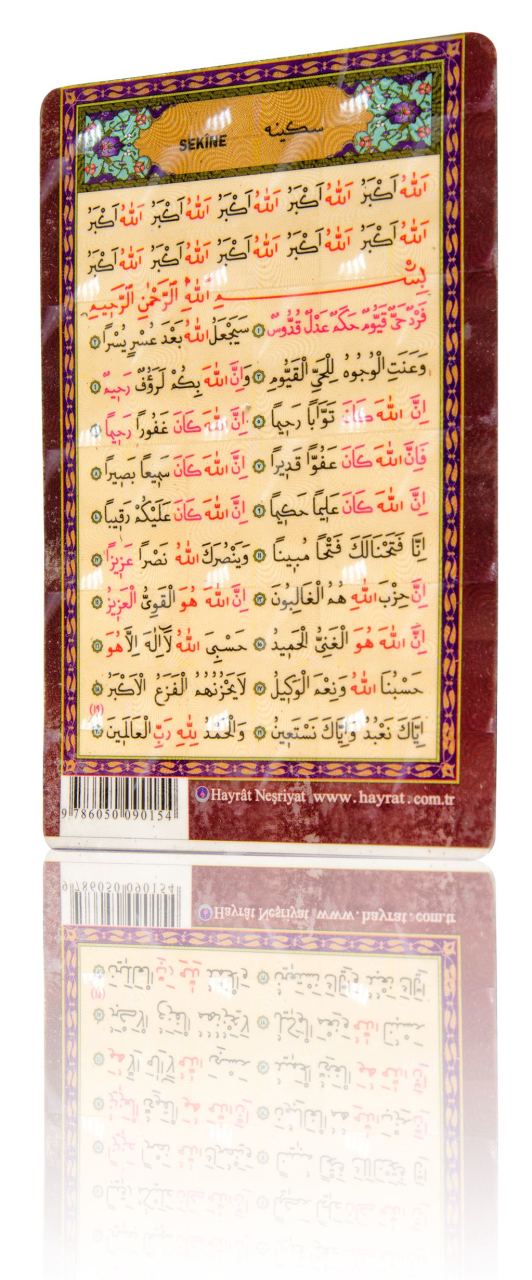 SEKÎNE سكينه
اَللّٰهُ اَكْبَرُ اَللّٰهُ اَكْبَرُ اَللّٰهُ اَكْبَرُ اَللّٰهُ اَكْبَرُ اَللّٰهُ اَكْبَرُ
اَللّٰهُ اَكْبَرُ اَللّٰهُ اَكْبَرُ اَللّٰهُ اَكْبَرُ اَللّٰهُ اَكْبَرُ اَللّٰهُ اَكْبَرُ
بِسْمِ اللّٰهِ الرَّحْمٰنِ الرَّحِيمِ
فَرْدٌ حَىٌّ قَيُّومٌ حَكَمٌ عَدْلٌ قُدُّوسٌ ١ سَيَجْعَلُ اللّٰهُ بَعْدَ عُسْرٍ يُسْرًا ٢
وَعَنَتِ الْوُجُوهُ لِلْحَىِّ الْقَيُّومِ ٣ وَاِنَّ اللّٰهَ بِكُمْ لَرَؤُفٌ رَحِيمٌ ٤
اِنَّ اللّٰهَ كَانَ تَوَّابًا رَحِيمًا ٥ اِنَّ اللّٰهَ كَانَ غَفُورًا رَحِيمًا ٦
فَاِنَّ اللّٰهَ كَانَ عَفُوًّا قَدِيرًا ٧ اِنَّ اللّٰهَ كَانَ سَمِيعًا بَصِيرًا ٨
اِنَّ اللّٰهَ كَانَ عَلِيمًا حَكِيمًا ٩ اِنَّ اللّٰهَ كَانَ عَلَيْكُمْ رَقِيبًا ١٠
اِنَّا فَتَحْنَالَكَ فَتْحًا مُبِينًا ١١ وَيَنْصُرَكَ اللّٰهُ نَصْرًا عَزِيزًا ١٢
اِنَّ حِزْبَ اللّٰهِ هُمُ الْغَالِبُونَ ١٣ اِنَّ اللّٰهَ هُوَ الْقَوِىُّ الْعَزِيزُ ١٤
اِنَّ اللّٰهَ هُوَ الْغَنِىُّ الْحَمِيدُ ١٥ حَسْبِىَ اللّٰهُ لَٓا اِلٰهَ اِلَّا هُوَ ١٦
حَسْبُنَا اللّٰهُ وَنِعْمَ الْوَكِيلُ ١٧ لَا يَحْزُنُهُمُ الْفَزَعُ الْاَكْبَرُ ١٨
(١٩)
اِيَّاكَ نَعْبُدُ وَاِيَّاكَ نَسْتَعِينُ ١٩ وَالْحَمْدُ لِلّٰهِ رَبِّ الْعَالَمِينَ
Hayrât Neşriyat www.hayrat.com.tr
9 786050 090154